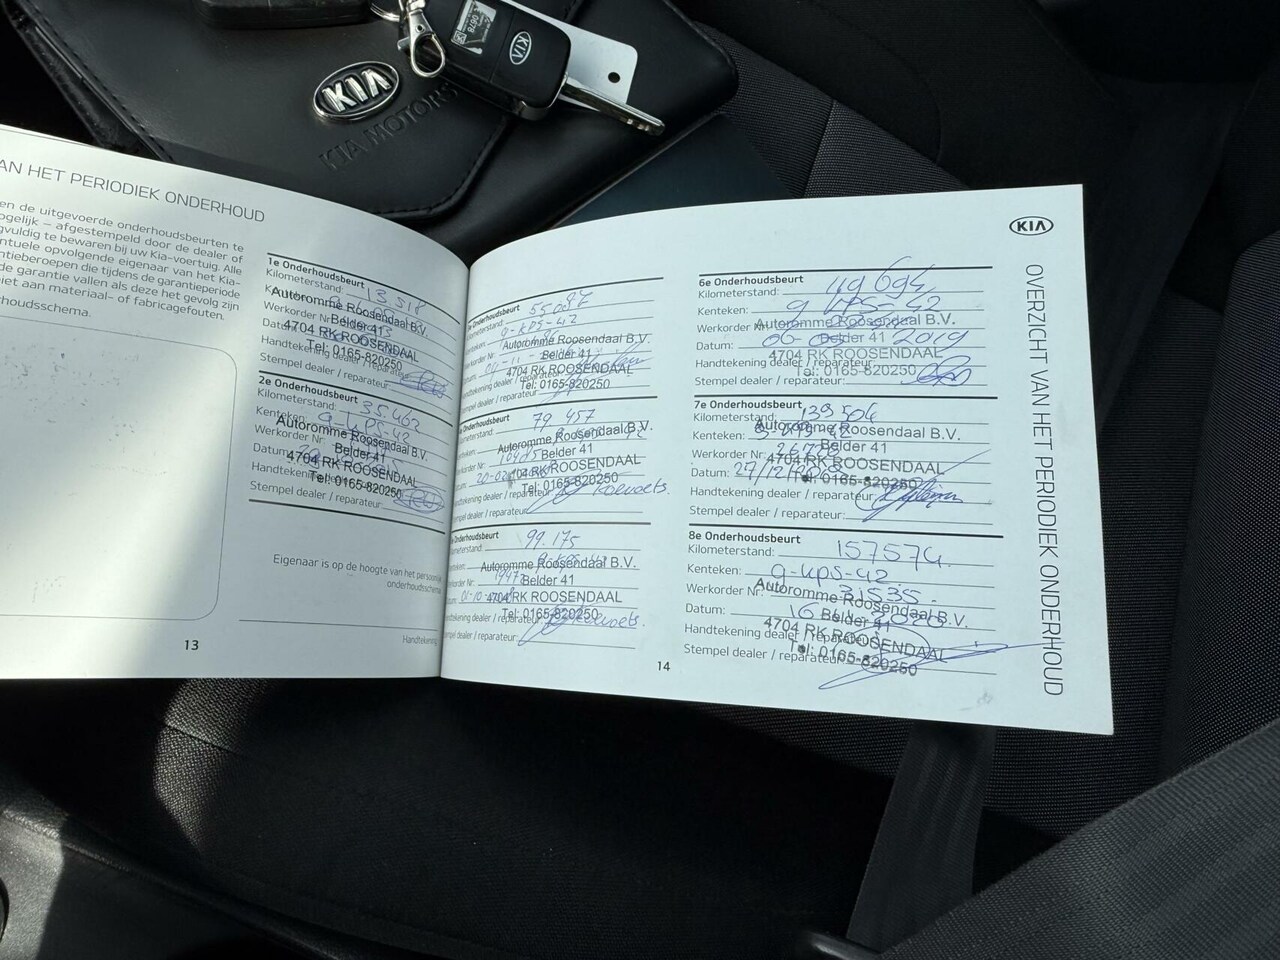 KIA
KIA
KIA MOTORS
AN HET PERIODIEK ONDERHOUD
en de uitgevoerde onderhoudsbeurten te
ogelijk – afgestempeld door de dealer of
gvuldig te bewaren bij uw Kia-voertuig. Alle
ntuele opvolgende eigenaar van het Kia-
ntieberoepen die tijdens de garantieperiode
de garantie vallen als deze het gevolg zijn
iet aan materiaal- of fabricagefouten.
rhoudsschema.
13
1e Onderhoudsbeurt
Kilometerstand: 13 518
Autoromme Roosendaal B.V.
Belder 41
4704 RK ROOSENDAAL
Tel: 0165-820250
Handtekening dealer / reparateur
Stempel dealer / reparateur:
2e Onderhoudsbeurt
Kilometerstand: 35.462
Kenteken: 9-kps-42
Autoromme Roosendaal B.V.
Werkorder Nr:
Belder 41
Datum:
4704 RK ROOSENDAAL
Tel: 0165-820250
Stempel dealer / reparateur:
Eigenaar is op de hoogte van het persoonlijk
onderhoudsschema
Handtekening
Onderhoudsbeurt
9-KPS-42
Autoromme Roosendaal B.V.
Werkorder Nr.
Belder 41
4704 RK ROOSENDAAL
Tel: 0165-820250
Stempel dealer / reparateur:
Onderhoudsbeurt
79 457
Autoromme Roosendaal B.V.
Belder 41
4704 RK ROOSENDAAL
Tel: 0165-820250
Stempel dealer / reparateur:
Onderhoudsbeurt
99.175
Autoromme Roosendaal B.V.
Belder 41
4704 RK ROOSENDAAL
Tel: 0165-820250
14
KIA
OVERZICHT VAN HET PERIODIEK ONDERHOUD
6e Onderhoudsbeurt
Kilometerstand: 119 694
Kenteken: 9 KPS-42
Werkorder Nr:
Autoromme Roosendaal B.V.
Datum: 2019
Belder 41
4704 RK ROOSENDAAL
Handtekening dealer / reparateur:
Tel: 0165-820250
Stempel dealer / reparateur:
7e Onderhoudsbeurt
Kilometerstand: 139504
Autoromme Roosendaal B.V.
Kenteken:
Belder 41
Werkorder Nr:
4704 RK ROOSENDAAL
Datum: 27/12/
Tel: 0165-820250
Handtekening dealer / reparateur:
Stempel dealer / reparateur:
8e Onderhoudsbeurt
Kilometerstand: 157574
Kenteken: 9-kps-42
Werkorder Nr: 31535
Autoromme Roosendaal B.V.
Datum: 16
Belder 41
Handtekening dealer / reparateur:
4704 RK ROOSENDAAL
Stempel dealer / reparateur:
Tel: 0165-820250